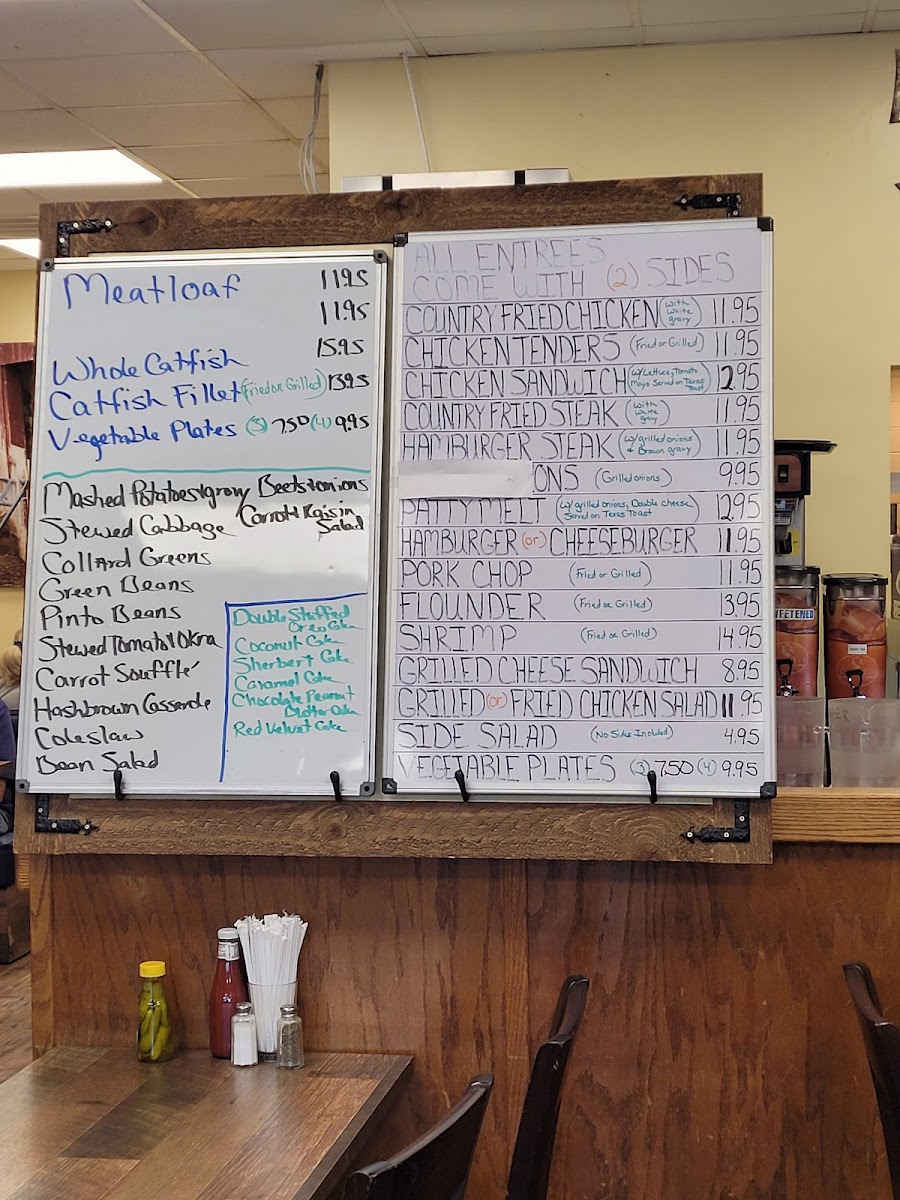 Meatloaf 11.95
11.95
Whole Catfish 15.95
Catfish Fillet (Fried or Grilled) 13.95
Vegetable Plates (3) 7.50 (4) 9.95
Mashed Potatoes + gravy Beets + onions
Stewed Cabbage Carrot + Raisin Salad
Collard Greens
Green Beans
Pinto Beans
Stewed Tomato + Okra
Carrot Soufflé
Hashbrown Casserole
Coleslaw
Bean Salad
Double Stuffed
Oreo Cake
Coconut Cake
Sherbert Cake
Caramel Cake
Chocolate Peanut
Butter Cake
Red Velvet Cake
ALL ENTREES
COME WITH (2) SIDES
COUNTRY FRIED CHICKEN (with white gravy) 11.95
CHICKEN TENDERS (Fried or Grilled) 11.95
CHICKEN SANDWICH (w/Lettuce, Tomato Mayo Served on Texas Toast) 12.95
COUNTRY FRIED STEAK (with white gravy) 11.95
HAMBURGER STEAK (w/grilled onions & Brown gravy) 11.95
ONS (Grilled onions) 9.95
PATTY MELT (w/grilled onions, Double cheese Served on Texas Toast) 12.95
HAMBURGER (or) CHEESEBURGER 11.95
PORK CHOP (Fried or Grilled) 11.95
FLOUNDER (Fried or Grilled) 13.95
SHRIMP (Fried or Grilled) 14.95
GRILLED CHEESE SANDWICH 8.95
GRILLED (or) FRIED CHICKEN SALAD 11.95
SIDE SALAD (No Sides Included) 4.95
VEGETABLE PLATES (3) 7.50 (4) 9.95